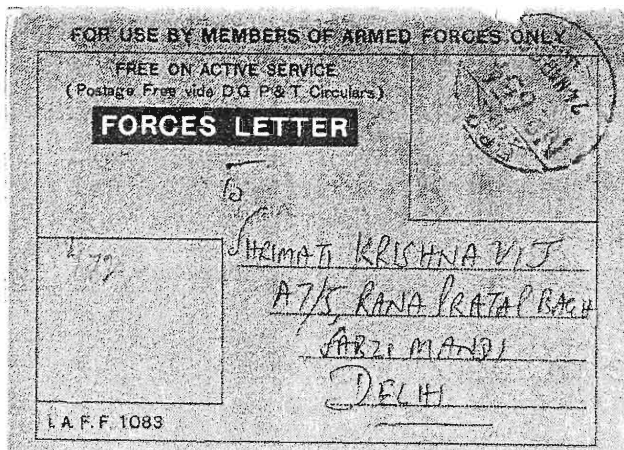 FOR USE BY MEMBERS OF ARMED FORCES ONLY
FREE ON ACTIVE SERVICE
(Postage Free vide D.G P & T Circulars)
FORCES LETTER
To
SHRIMATI KRISHNA VIJ
A7/5, RANA PRATAP BAGH
SABZI MANDI
DELHI
I. A. F. F. 1083